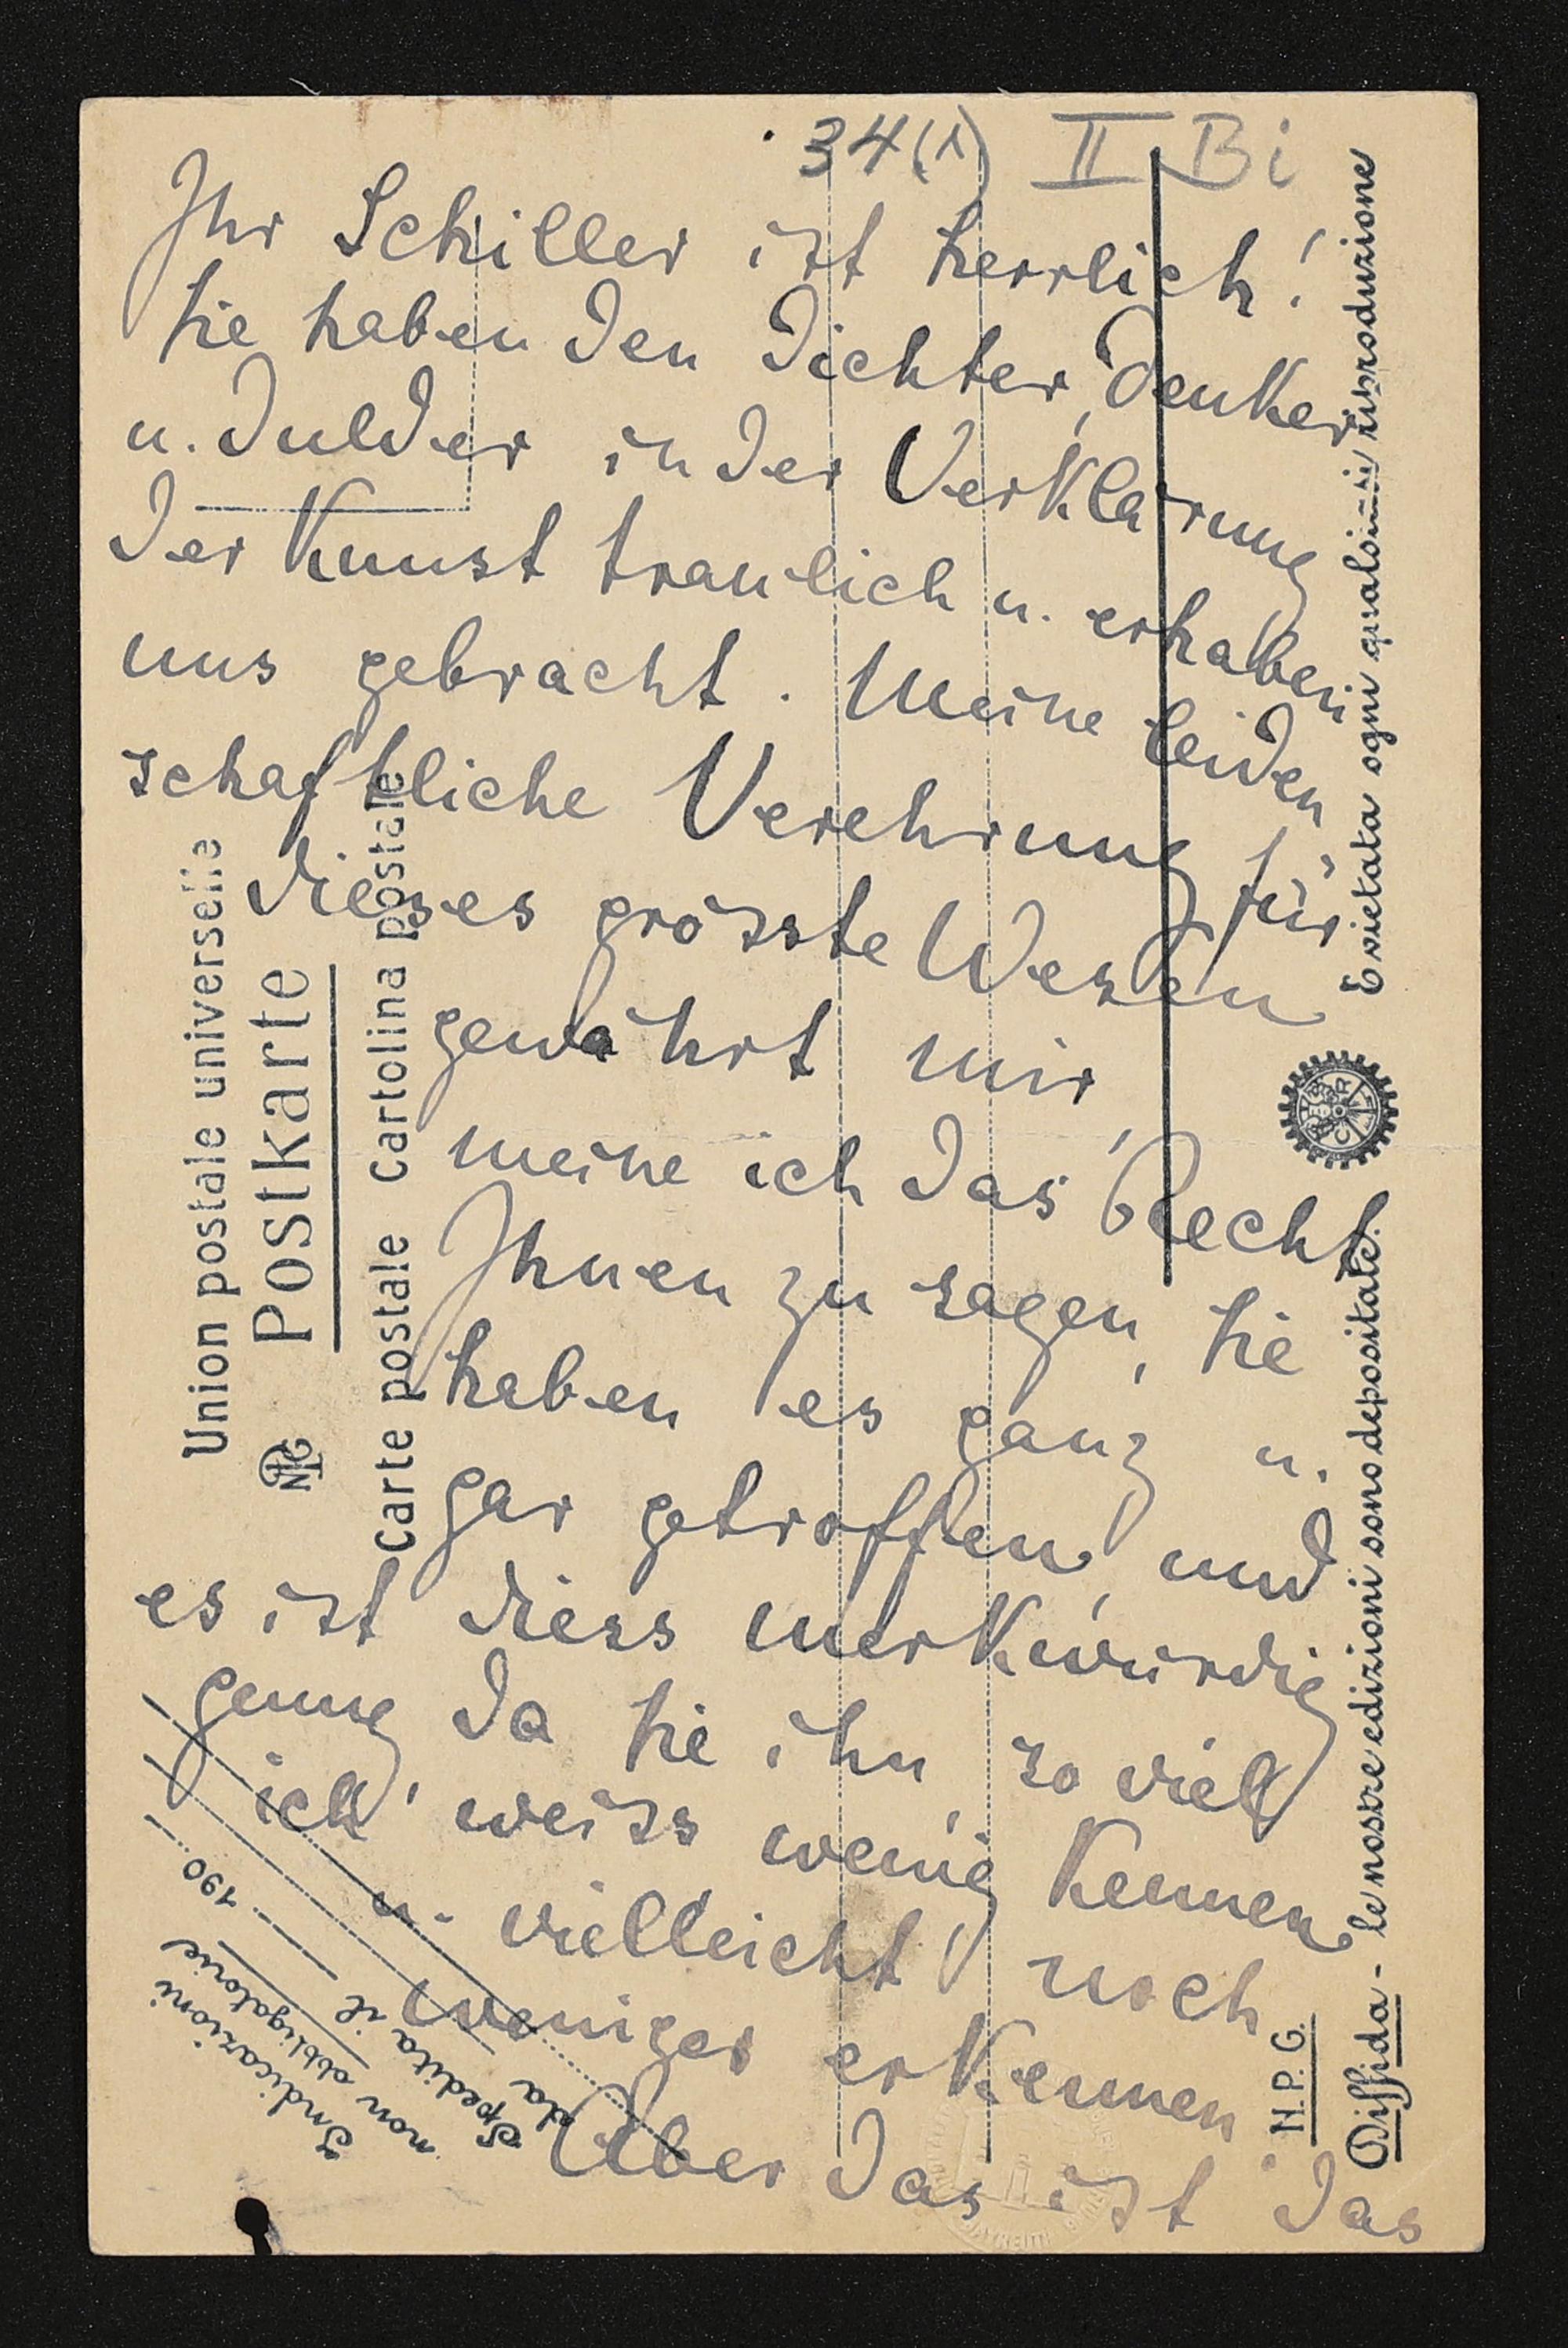 34(1) II Bi
Ihr Schiller ist herrlich!
Sie haben den Dichter, Denker
u. Dulder in der Verklärung
der Kunst traulich u. erhaben
uns gebracht. Meine leiden
schaftliche Verehrung für
dieses grösste Wesen
gewährt mir,
meine ich das Recht
Ihnen zu sagen, Sie
haben es ganz u.
gar getroffen, und
es ist diess merkwürdig
genug da Sie ihn, so viel
ich weiss wenig kennen
u. vielleicht noch
weniger erkennen.
Aber das ist das
Union postale universelle
NPG Postkarte
Carte postale Cartolina postale
È vietata ogni riproduzione
Diffida - le nostre edizioni sono depositate.
N.P.G.
Indicazioni
non obbligatorie
Spedita il 190
da